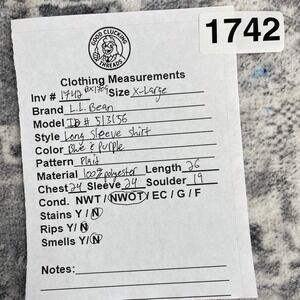 1742
GOOD CLUCKING
THREADS
Clothing Measurements
Inv # 1742 Size X-Large
Brand L.L. Bean
Model ID # 513156
Style Long Sleeve shirt
Color Blue & purple
Pattern Plaid
Material 100% polyester Length 26
Chest 24 Sleeve 24 Soulder 19
Cond. NWT / NWOT / EC / G / F
Stains Y / N
Rips Y / N
Smells Y / N
Notes: